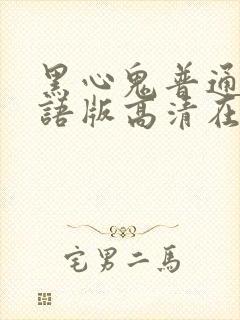 黑心鬼普通
語版高清在
宅男二馬